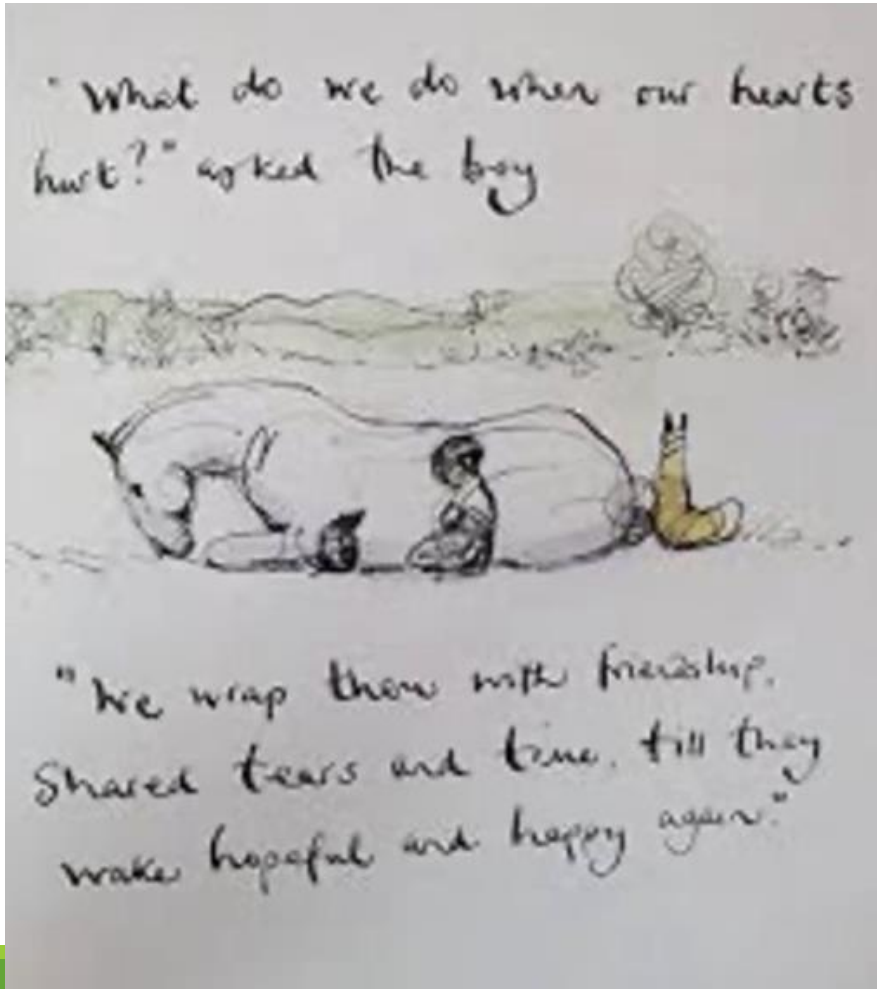 "What do we do when our hearts
hurt?" asked the boy
"We wrap them with friendship,
shared tears and time, till they
wake hopeful and happy again."